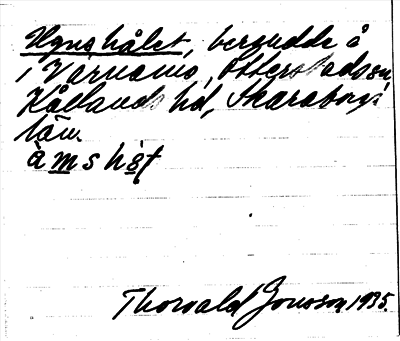 hålet, bergudde å
i Värnanäs, Otterstads sn,
Kållands hd, Skaraborgs
län.
Thorvald Jonsson 1935.